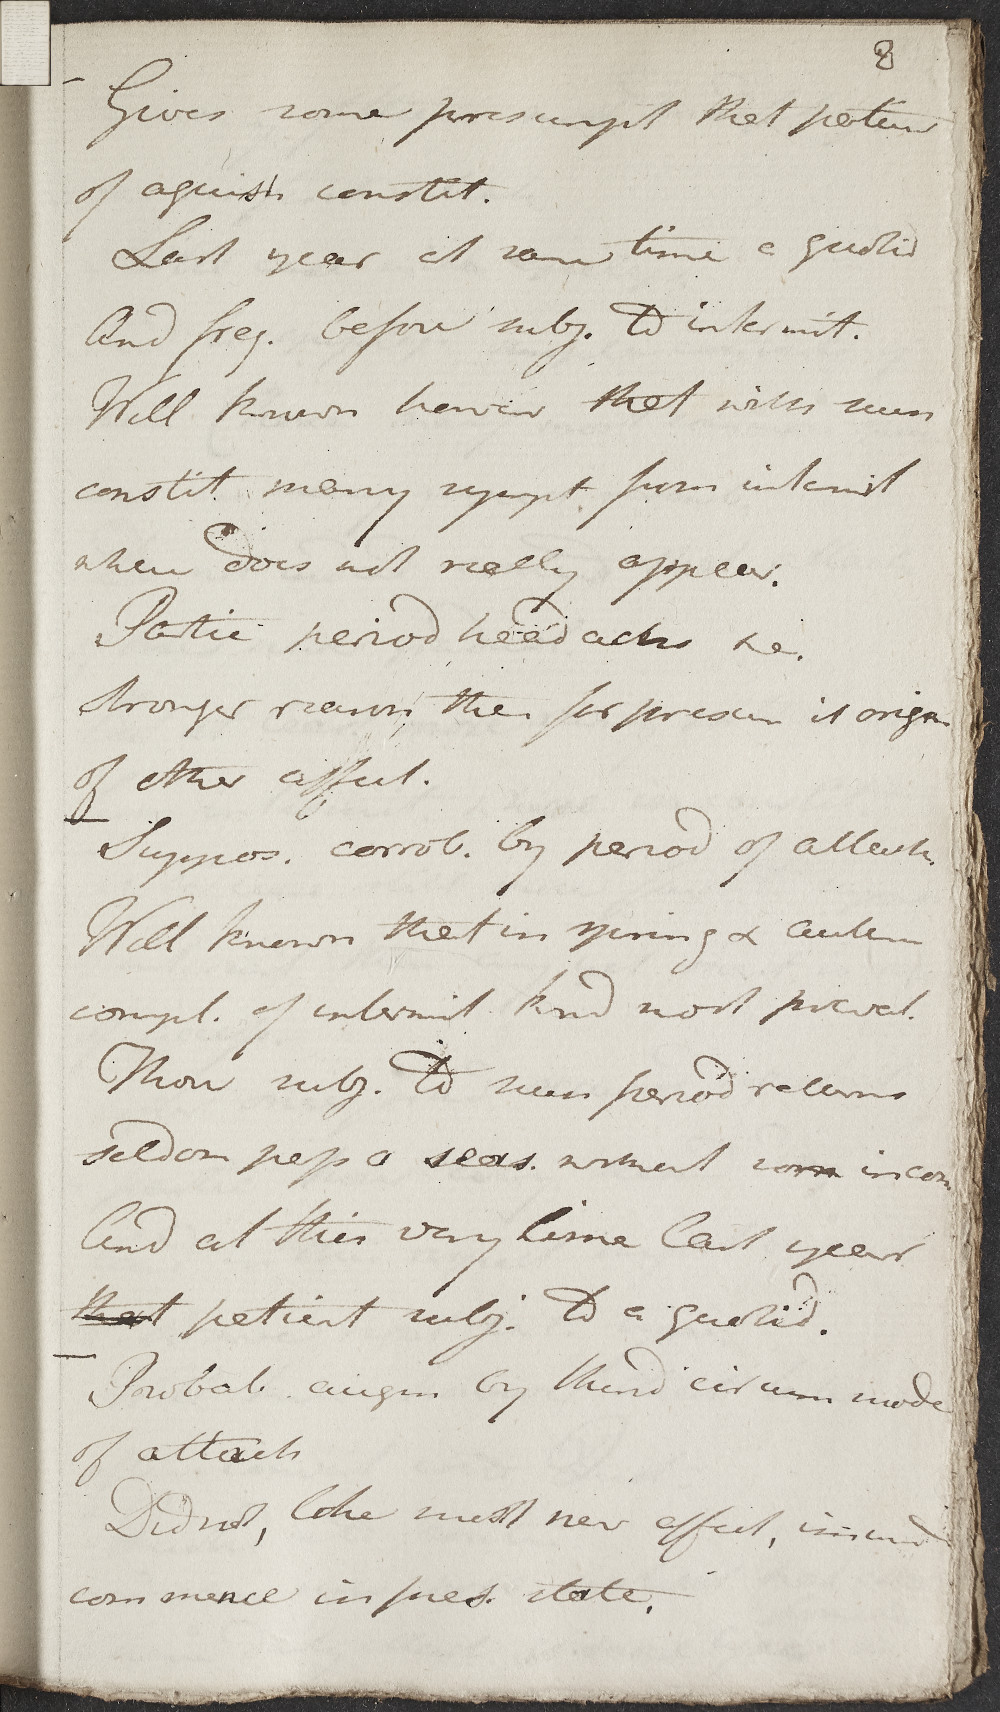 8
Gives some presumpt that patient
of aguish constit.
Last year at same time a quotid
And freq. before subj. to intermit.
Well known however that with such
constit. many sympt. from intermit
when does not really appear.
Partic period headachs &c.
stronger reason then for presum it origin
of other affect.
Suppos. corrob. by period of attack.
Well known that in spring & autum
compl. of intermit. kind most preval.
Those subj. to such period returns
seldom pass a seas. without some incon
And at this very time last year
that patient subj. to a quotid.
Probab. augm by third circum mode
of attack
Did not, like most nerv affect, immed
commence in pres. state.